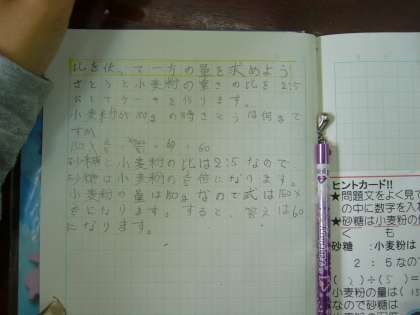 比を使って一方の量を求めよう
さとうと小麦粉の重さの比を2:5
としてケーキを作ります。
小麦粉が150gの時さとうは何gで
すか
150×2/5=60
砂糖と小麦粉の比は2:5なので
砂糖は小麦粉の2/5倍になります。
小麦粉の量は150gなので式は150×
2/5になります。すると、答えは60
になります。
ヒントカード!!
★問題文をよく見て
の中に数字を入れ
★砂糖は小麦粉の
く も
砂糖 :小麦粉は
2 : 5なので
(2)÷(5)=
小麦粉の量は(15
なので砂糖は